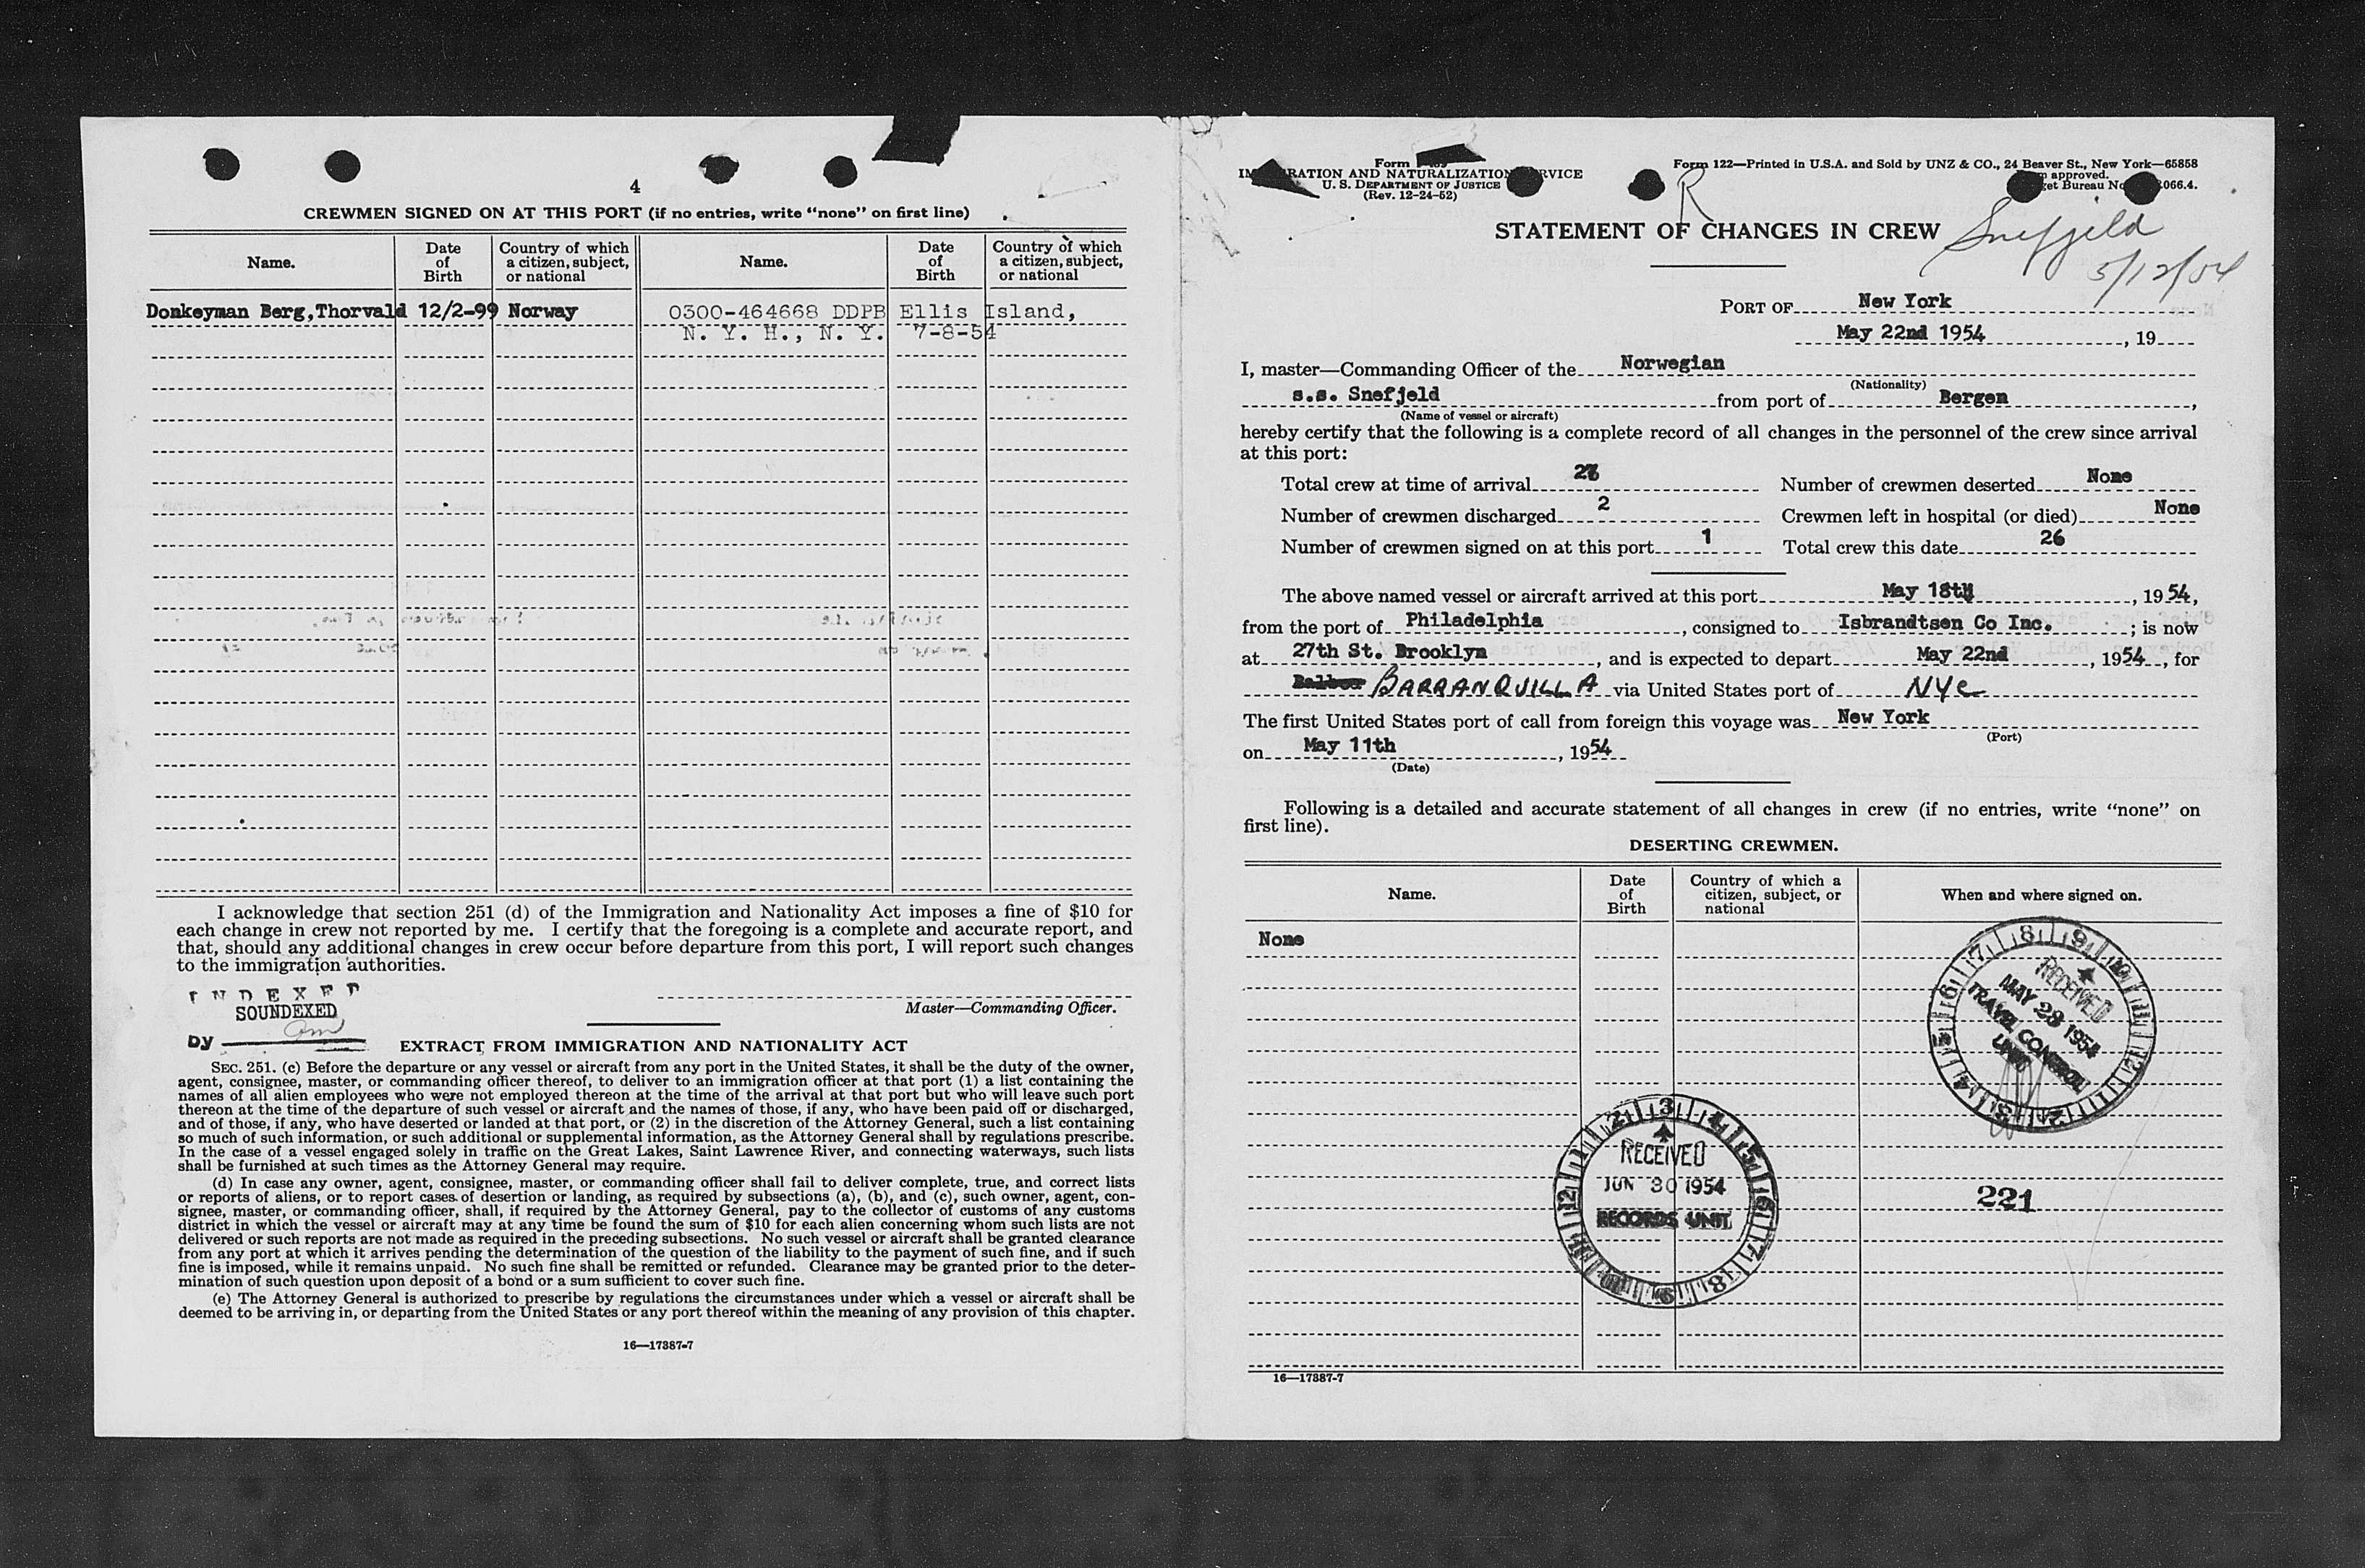 4
CREWMEN SIGNED ON AT THIS PORT (if no entries, write "none" on first line)
Name. Date of Birth Country of which a citizen, subject, or national Name. Date of Birth Country of which a citizen, subject, or national
Donkeyman Berg,Thorvald 12/2-99 Norway 0300-464668 DDPB Ellis Island,
N. Y. H., N. Y. 7-8-54
I acknowledge that section 251 (d) of the Immigration and Nationality Act imposes a fine of $10 for
each change in crew not reported by me. I certify that the foregoing is a complete and accurate report, and
that, should any additional changes in crew occur before departure from this port, I will report such changes
to the immigration authorities.
INDEXED
SOUNDEXED
by
Master—Commanding Officer.
EXTRACT FROM IMMIGRATION AND NATIONALITY ACT
SEC. 251. (c) Before the departure or any vessel or aircraft from any port in the United States, it shall be the duty of the owner,
agent, consignee, master, or commanding officer thereof, to deliver to an immigration officer at that port (1) a list containing the
names of all alien employees who were not employed thereon at the time of the arrival at that port but who will leave such port
thereon at the time of the departure of such vessel or aircraft and the names of those, if any, who have been paid off or discharged,
and of those, if any, who have deserted or landed at that port, or (2) in the discretion of the Attorney General, such a list containing
so much of such information, or such additional or supplemental information, as the Attorney General shall by regulations prescribe.
In the case of a vessel engaged solely in traffic on the Great Lakes, Saint Lawrence River, and connecting waterways, such lists
shall be furnished at such times as the Attorney General may require.
(d) In case any owner, agent, consignee, master, or commanding officer shall fail to deliver complete, true, and correct lists
or reports of aliens, or to report cases of desertion or landing, as required by subsections (a), (b), and (c), such owner, agent, con-
signee, master, or commanding officer, shall, if required by the Attorney General, pay to the collector of customs of any customs
district in which the vessel or aircraft may at any time be found the sum of $10 for each alien concerning whom such lists are not
delivered or such reports are not made as required in the preceding subsections. No such vessel or aircraft shall be granted clearance
from any port at which it arrives pending the determination of the question of the liability to the payment of such fine, and if such
fine is imposed, while it remains unpaid. No such fine shall be remitted or refunded. Clearance may be granted prior to the deter-
mination of such question upon deposit of a bond or a sum sufficient to cover such fine.
(e) The Attorney General is authorized to prescribe by regulations the circumstances under which a vessel or aircraft shall be
deemed to be arriving in, or departing from the United States or any port thereof within the meaning of any provision of this chapter.
16—17387-7
Form
RATION AND NATURALIZATION RVICE
U. S. DEPARTMENT OF JUSTICE
(Rev. 12-24-52)
Form 122—Printed in U.S.A. and Sold by UNZ & CO., 24 Beaver St., New York—65858
approved.
get Bureau No 066.4.
R
STATEMENT OF CHANGES IN CREW
Snefjeld
5/12/54
PORT OF New York
May 22nd 1954, 19
I, master—Commanding Officer of the Norwegian
(Nationality)
s.s. Snefjeld from port of Bergen,
(Name of vessel or aircraft)
hereby certify that the following is a complete record of all changes in the personnel of the crew since arrival
at this port:
Total crew at time of arrival Number of crewmen deserted None
Number of crewmen discharged 2 Crewmen left in hospital (or died) None
Number of crewmen signed on at this port 1 Total crew this date 26
The above named vessel or aircraft arrived at this port May 18th, 1954,
from the port of Philadelphia, consigned to Isbrandtsen Co Inc.; is now
at 27th St. Brooklyn, and is expected to depart May 22nd, 1954, for
Balboa BARRANQUILLA via United States port of NYC
The first United States port of call from foreign this voyage was New York
(Port)
on May 11th, 1954
(Date)
Following is a detailed and accurate statement of all changes in crew (if no entries, write "none" on
first line).
DESERTING CREWMEN.
Name. Date of Birth Country of which a citizen, subject, or national When and where signed on.
None
RECEIVED
MAY 28 1954
TRAVEL CONTROL
UNIT
RECEIVED
JUN 30 1954
RECORDS UNIT
221
16—17387-7